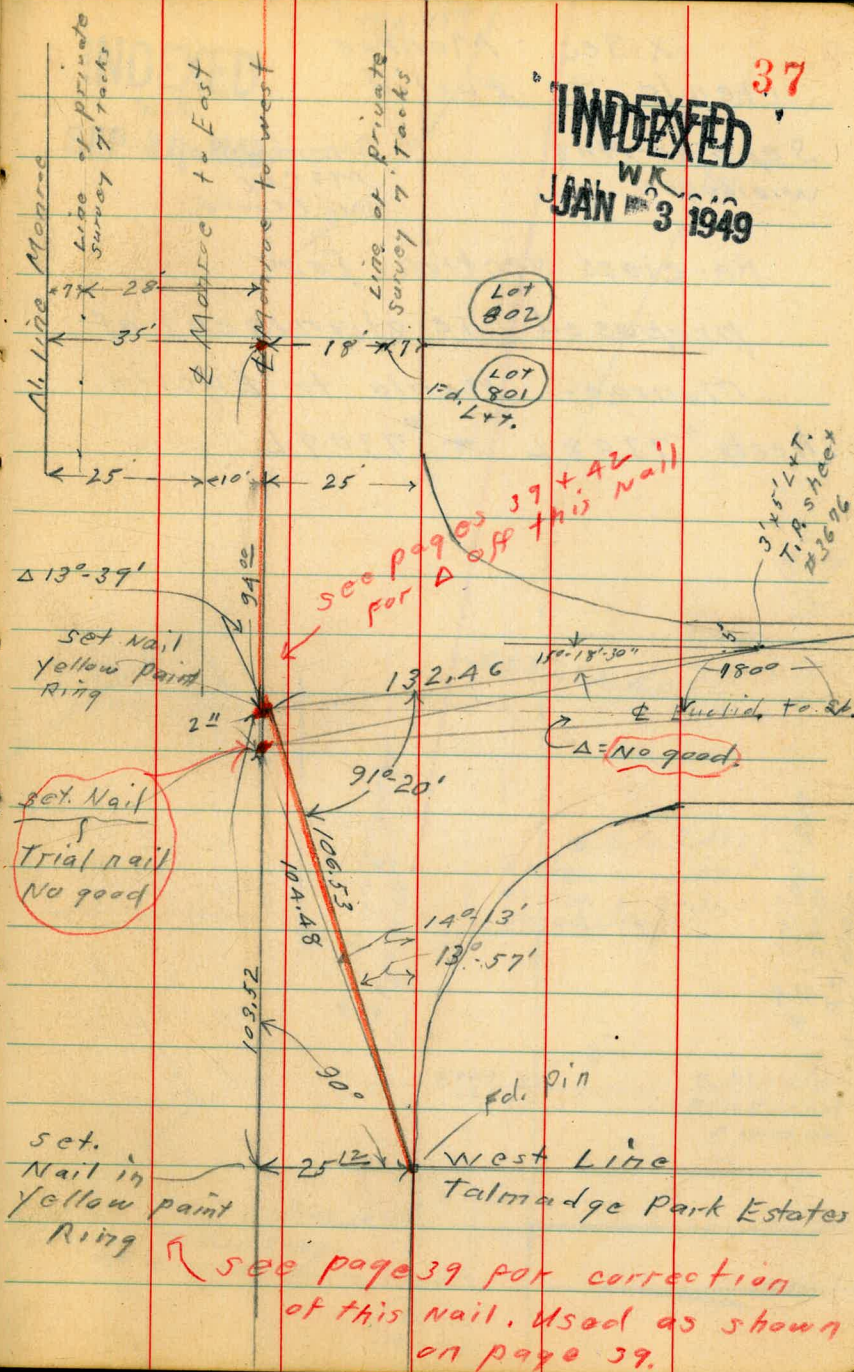 37
INDEXED
WK
JAN 3 1949
N. Line Monroe
Line of private
survey 7' Tacks
℄ Monroe to East
℄ Monroe to west
Line of private
survey 7' Tacks
7'
28'
35'
18'
7'
Lot
802
Lot
801
Fd.
L+T.
25'
10'
25'
see pages 39 + 42
for Δ off this Nail
3' x 5' L+T.
T.P. sheex
#3676
Δ 13°-39'
94.00
set Nail
Yellow Paint
Ring
2"
132.46
15°-18'-30"
.5'
1800
℄ Euclid. to
Δ = No good.
91°-20'
set. Nail
Trial nail
No good
106.53
104.48
14°-13'
13°-57'
103.52
90°
Fd. Pin
set.
Nail in
Yellow paint
Ring
25.12
West Line
Talmadge Park Estates
see page 39 for correction
of this Nail. Used as shown
on page 39.